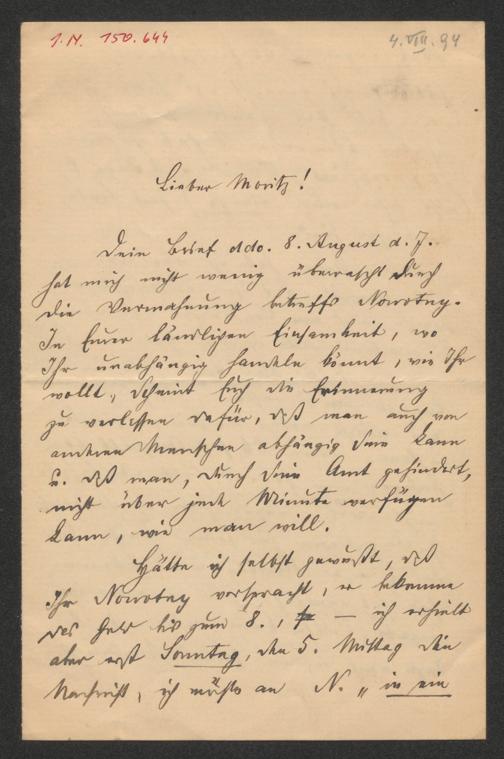 I.N. 150.644
4.VIII.94
Lieber Moritz!
Dein Brief ddo. 8. August d. J.
hat mich nicht wenig überrascht durch
die Vermahnung betreffs Nowotny.
In Eurer ländlichen Einsamkeit, wo
Ihr unabhängig handeln könnt, wie Ihr
wollt, scheint Euch die Erinnerung
zu verlassen dafür, daß man auch von
anderen Menschen abhängig sein kann
u. daß man, durch sein Amt gehindert,
nicht über jede Minute verfügen
kann, wie man will.
Hätte ich selbst gewußt, daß
Ihr Nowotny verspracht, er bekomme
das Geld bis zum 8., — ich erhielt
aber erst Sonntag, den 5. Mittag die
Nachricht, ich müßte an N. „in ein